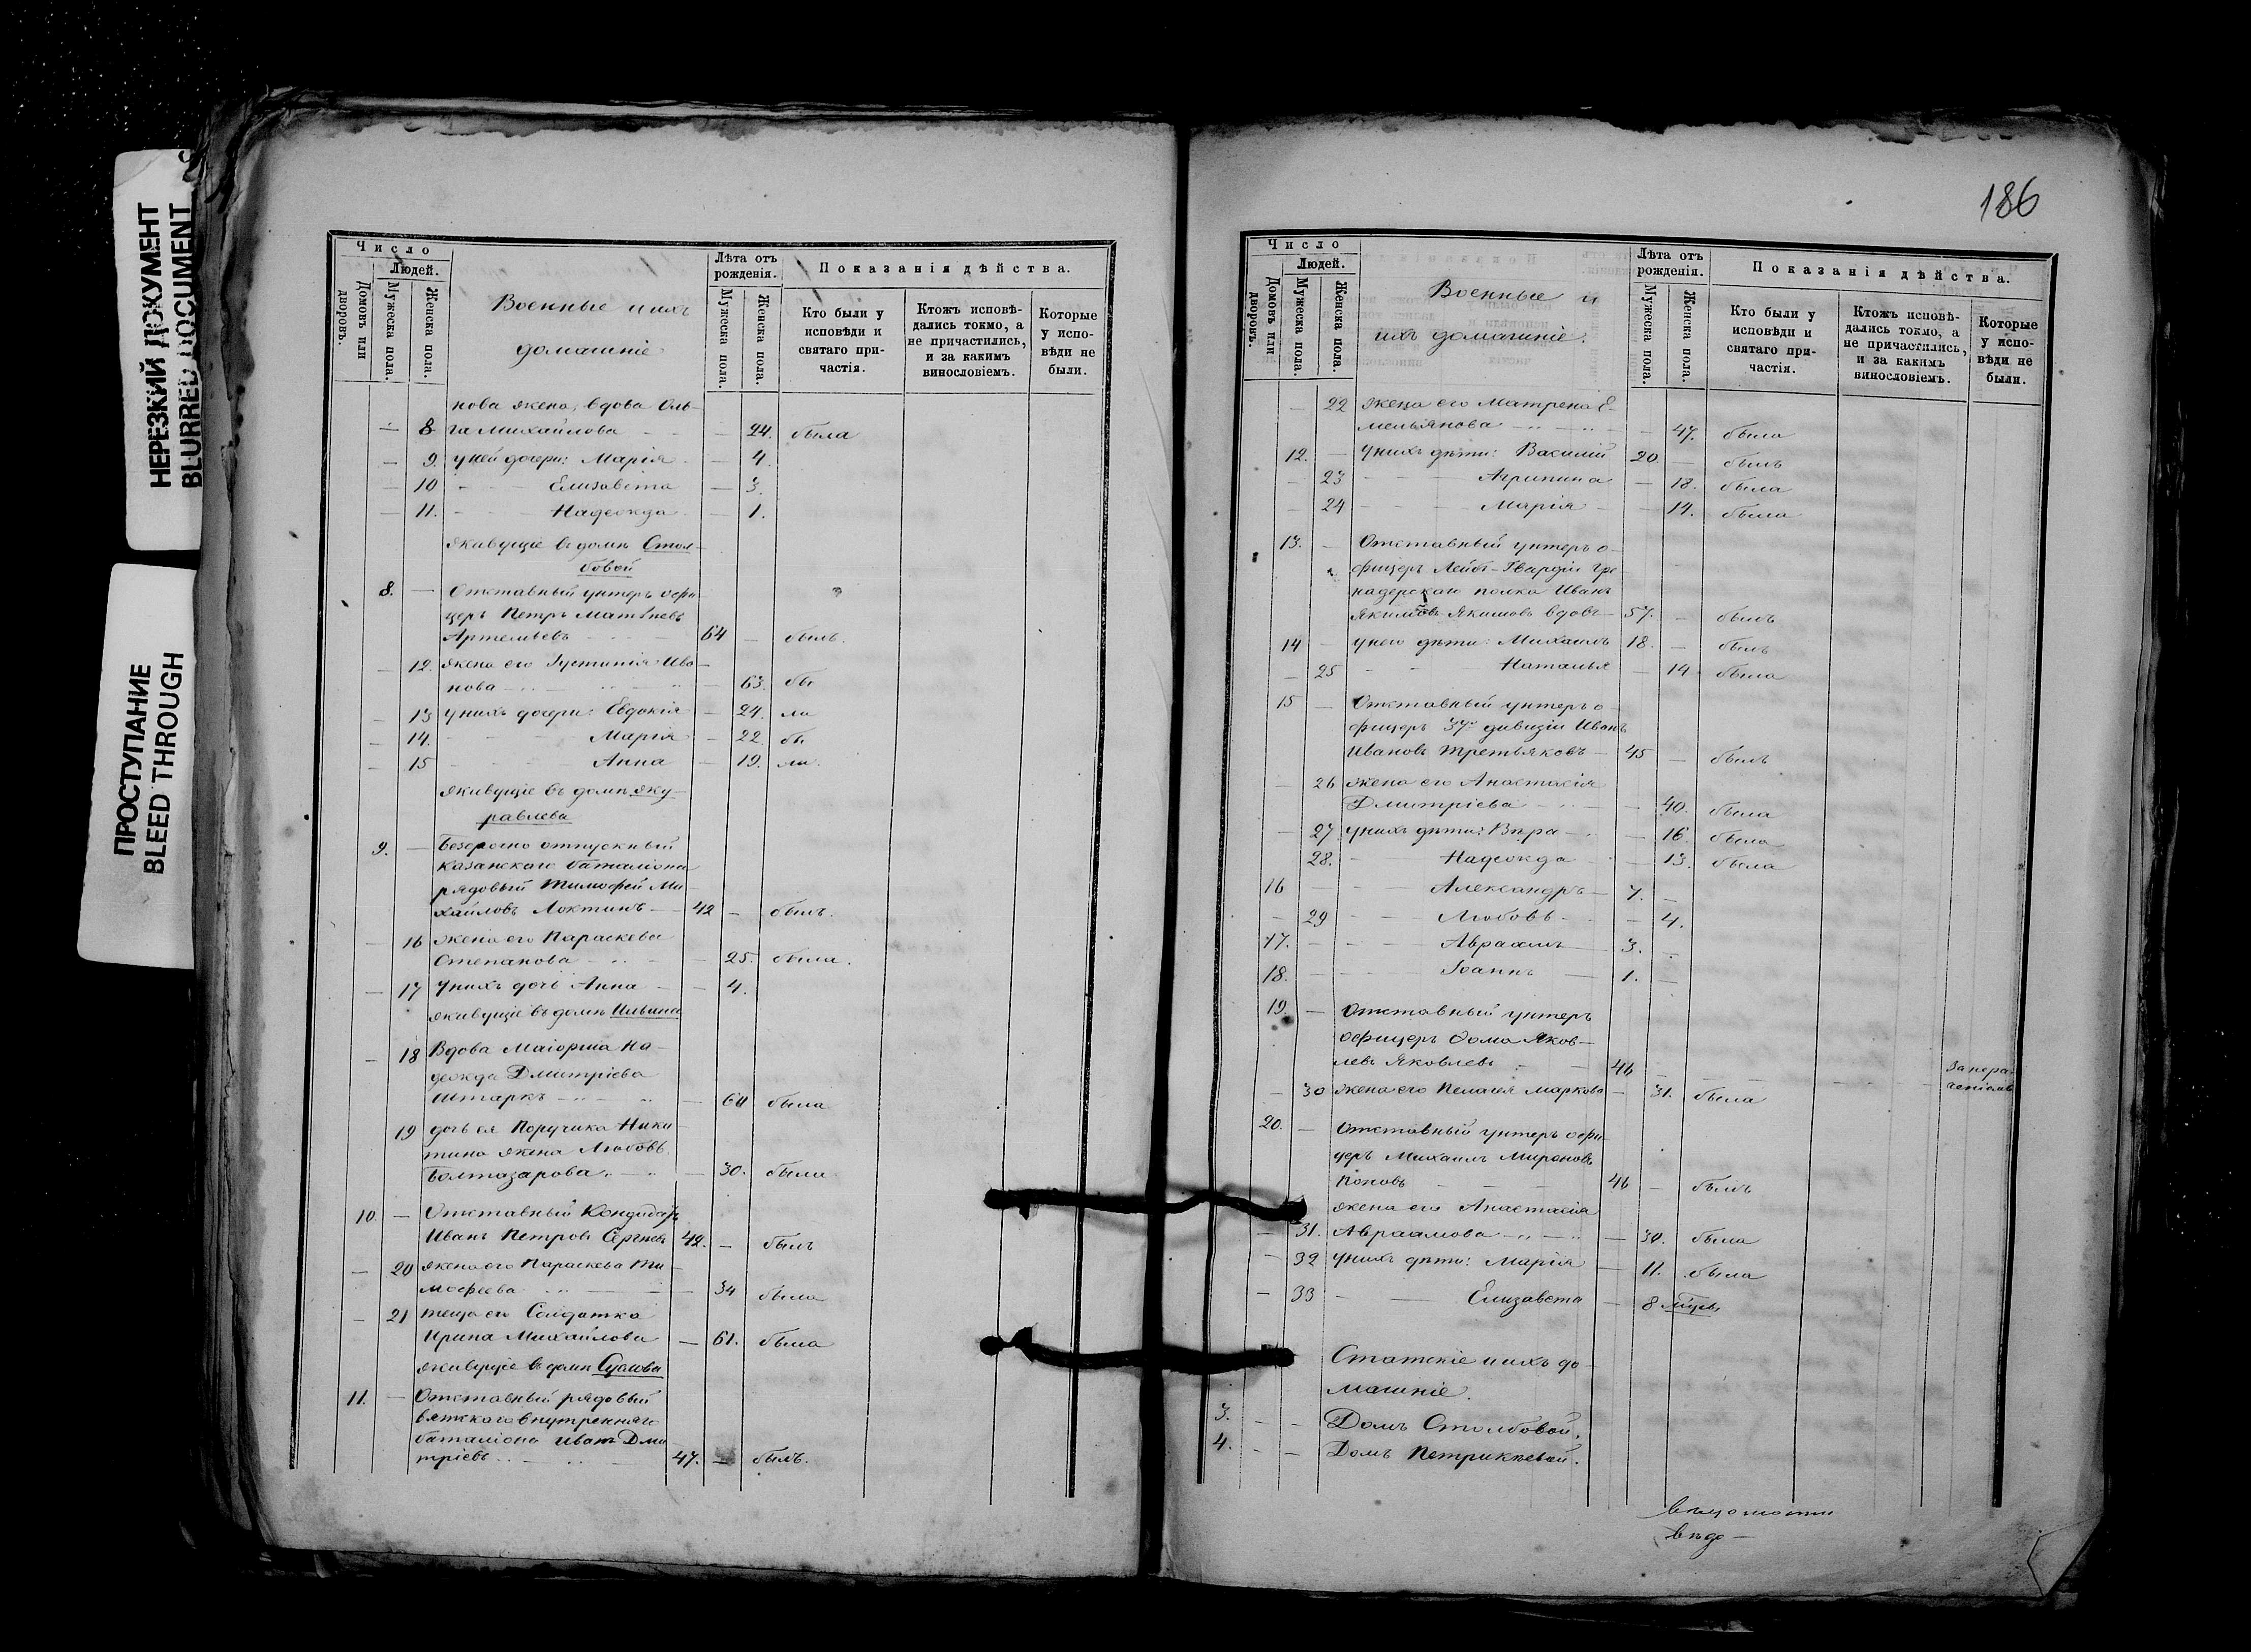 НЕРЕЗКИЙ ДОКУМЕНТ
BLURRED DOCUMENT
ПРОСТУПАНИЕ
BLEED THROUGH
Число
Людей.
Домовъ или дворовъ.
Мужеска пола.
Женска пола.
Военные и ихъ
домашніе
Лѣта отъ рожденія.
Мужеска пола.
Женска пола.
Показанія дѣйства.
Кто были у исповѣди и святаго причастія.
Ктожъ исповѣдались токмо, а не причастились, и за какимъ винословіемъ.
Которые у исповѣди не были.
нова жена, вдова Оль-
— 8 га Михайлова — 24. была
— 9. у ней дочери: Марія — 4.
— 10 Елизавета — 3.
— 11. Надежда — 1.
живущіе въ домѣ Стол-
бовой
8. — Отставный унтеръ офи-
церъ Петръ Матвѣевъ
Артемьевъ 64 — былъ.
— 12. жена его Іустинія Ива-
нова — 63. бы
— 13 у нихъ дочери: Евдокія — 24. ли
— 14. Марія — 22. бы
— 15 Анна — 19. ли.
живущіе въ домѣ Жу-
равлева
9. — Безсрочно отпускный
Казанскаго баталіона
рядовый Тимофей Ми-
хайловъ Локтинъ — 42 — былъ.
— 16 жена его Параскева
Степанова — 25. была.
— 17 у нихъ дочь Анна — 4.
живущіе въ домѣ Ильина
— 18 Вдова Маіорша На-
дежда Дмитріева
Штаркъ — 60 была
19 дочь ея Поручика Ники-
тина жена Любовь
Болтазарова — 30. была
10. — Отставный Кондукторъ
Иванъ Петровъ Сергѣевъ 42. — былъ
— 20 жена его Параскева Ти-
мофеева — 34 была
— 21 теща его Солдатка
Ирина Михайлова — 61. была
живущіе въ домѣ Суслова
11. — Отставный рядовый
Вятскаго внутренняго
баталіона Иванъ Дми-
тріевъ 47. — былъ.
186
Число
Людей.
Домовъ или дворовъ.
Мужеска пола.
Женска пола.
Военные и
ихъ домашніе.
Лѣта отъ рожденія.
Мужеска пола.
Женска пола.
Показанія дѣйства.
Кто были у исповѣди и святаго причастія.
Ктожъ исповѣдались токмо, а не причастились, и за какимъ винословіемъ.
Которые у исповѣди не были.
— 22 жена его Матрена Е-
мельянова — 47. была
12. — у нихъ дѣти: Василій 20. — былъ
— 23 Агрипина — 18. была
— 24 Марія — 14. была
13. — Отставный унтеръ о-
фицеръ Лейбъ-Гвардіи Гре
надерскаго полка Иванъ
Якимовъ Якимовъ вдовъ — 57. — былъ
14 — у него дѣти: Михаилъ 18. — былъ
— 25 Наталья — 14 была
15 — Отставный унтеръ о-
фицеръ 37й дивизіи Иванъ
Ивановъ Третьяковъ — 45 — былъ
— 26 жена его Анастасія
Дмитріева — 40. была
— 27 у нихъ дѣти: Вѣра — 16 была
28. Надежда — 13. была
16 Александръ — 7. —
— 29 Любовь — 4.
17. Авраамъ 3. —
18. Іоаннъ — 1. —
19. — Отставный унтеръ
офицеръ Ѳома Яков-
левъ Яковлевъ 46 — За нера-
ченіемъ
— 30 жена его Пелагея Маркова — 31. была
20. — Отставный унтеръ офи-
церъ Михаилъ Мироновъ
Поповъ 46 — былъ
жена его Анастасія
— 31. Авраамова — 30. была
— 32 у нихъ дѣти: Марія — 11. была
— 33 Елизавета — 8
Статскіе и ихъ до-
машніе.
3. — — Домъ Столбовой.
4. — — Домъ Петрикѣевой.